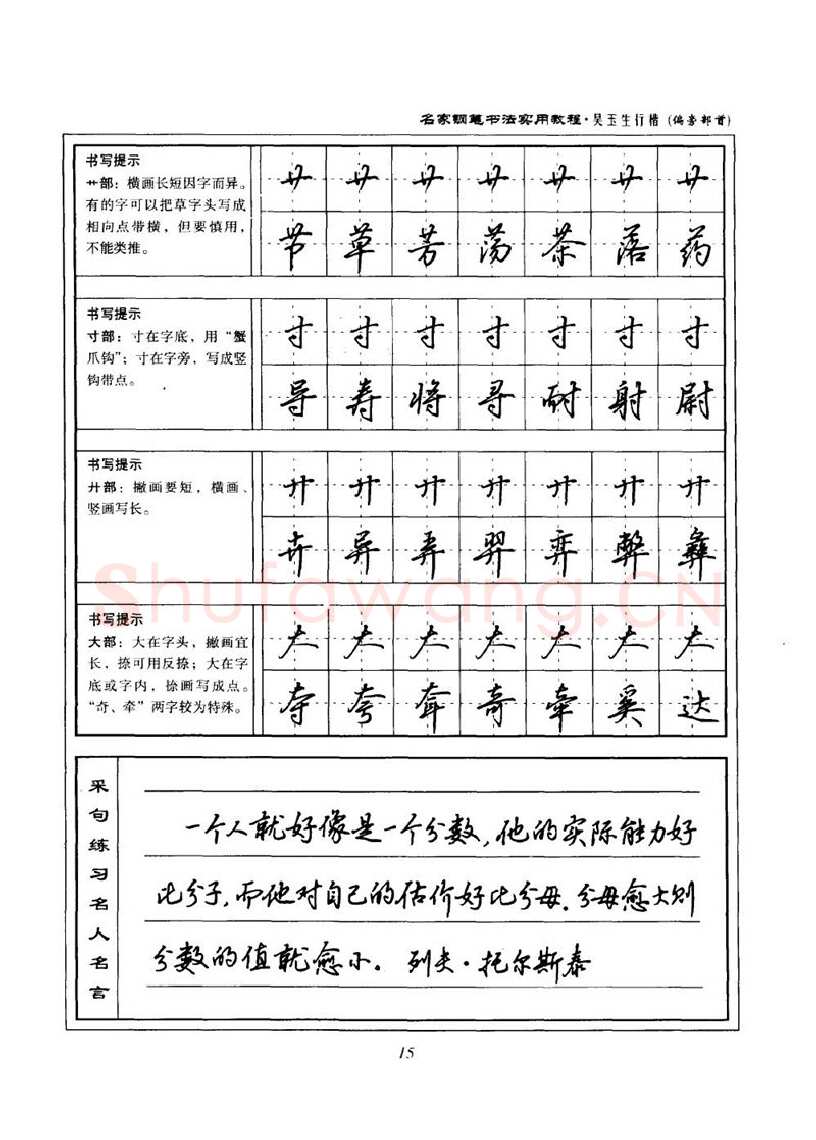 名家钢笔书法实用教程·吴玉生行楷（偏旁部首）
书写提示
艹部：横画长短因字而异。
有的字可以把草字头写成
相向点带横，但要慎用，
不能类推。
艹 艹 艹 艹 艹 艹 艹
节 草 芳 荡 茶 落 药
书写提示
寸部：寸在字底，用“蟹
爪钩”；寸在字旁，写成竖
钩带点。
寸 寸 寸 寸 寸 寸 寸
导 寿 将 寻 耐 射 尉
书写提示
廾部：撇画要短，横画、
竖画写长。
廾 廾 廾 廾 廾 廾 廾
卉 异 弄 羿 弈 弊 彝
书写提示
大部：大在字头，撇画宜
长，捺可用反捺；大在字
底或字内，捺画写成点。
“奇、牵”两字较为特殊。
大 大 大 大 大 大 大
夺 夸 耷 奇 牵 奚 达
Shufawang.CN
采句练习名人名言
一个人就好像是一个分数，他的实际能力好
比分子，而他对自己的估价好比分母。分母愈大则
分数的值就愈小。 列夫·托尔斯泰
15